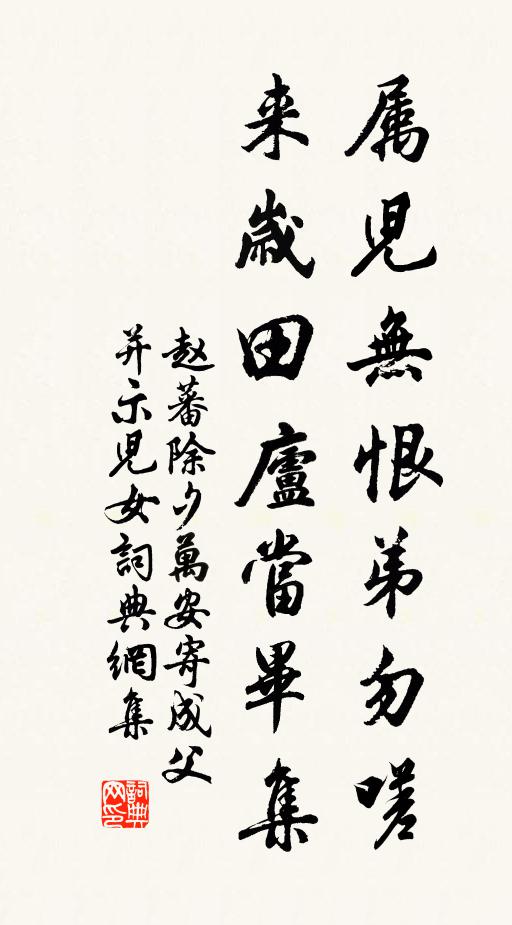 属児無恨弟勿嗟
来歳田廬當畢集
赵蕃除夕萬安寄成父
并示児女詞典網集
詞典网印